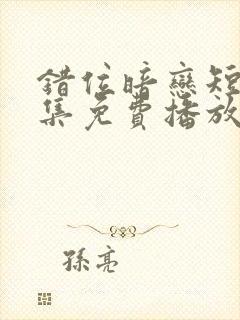 錯位暗戀短
集免費播放
孫亮